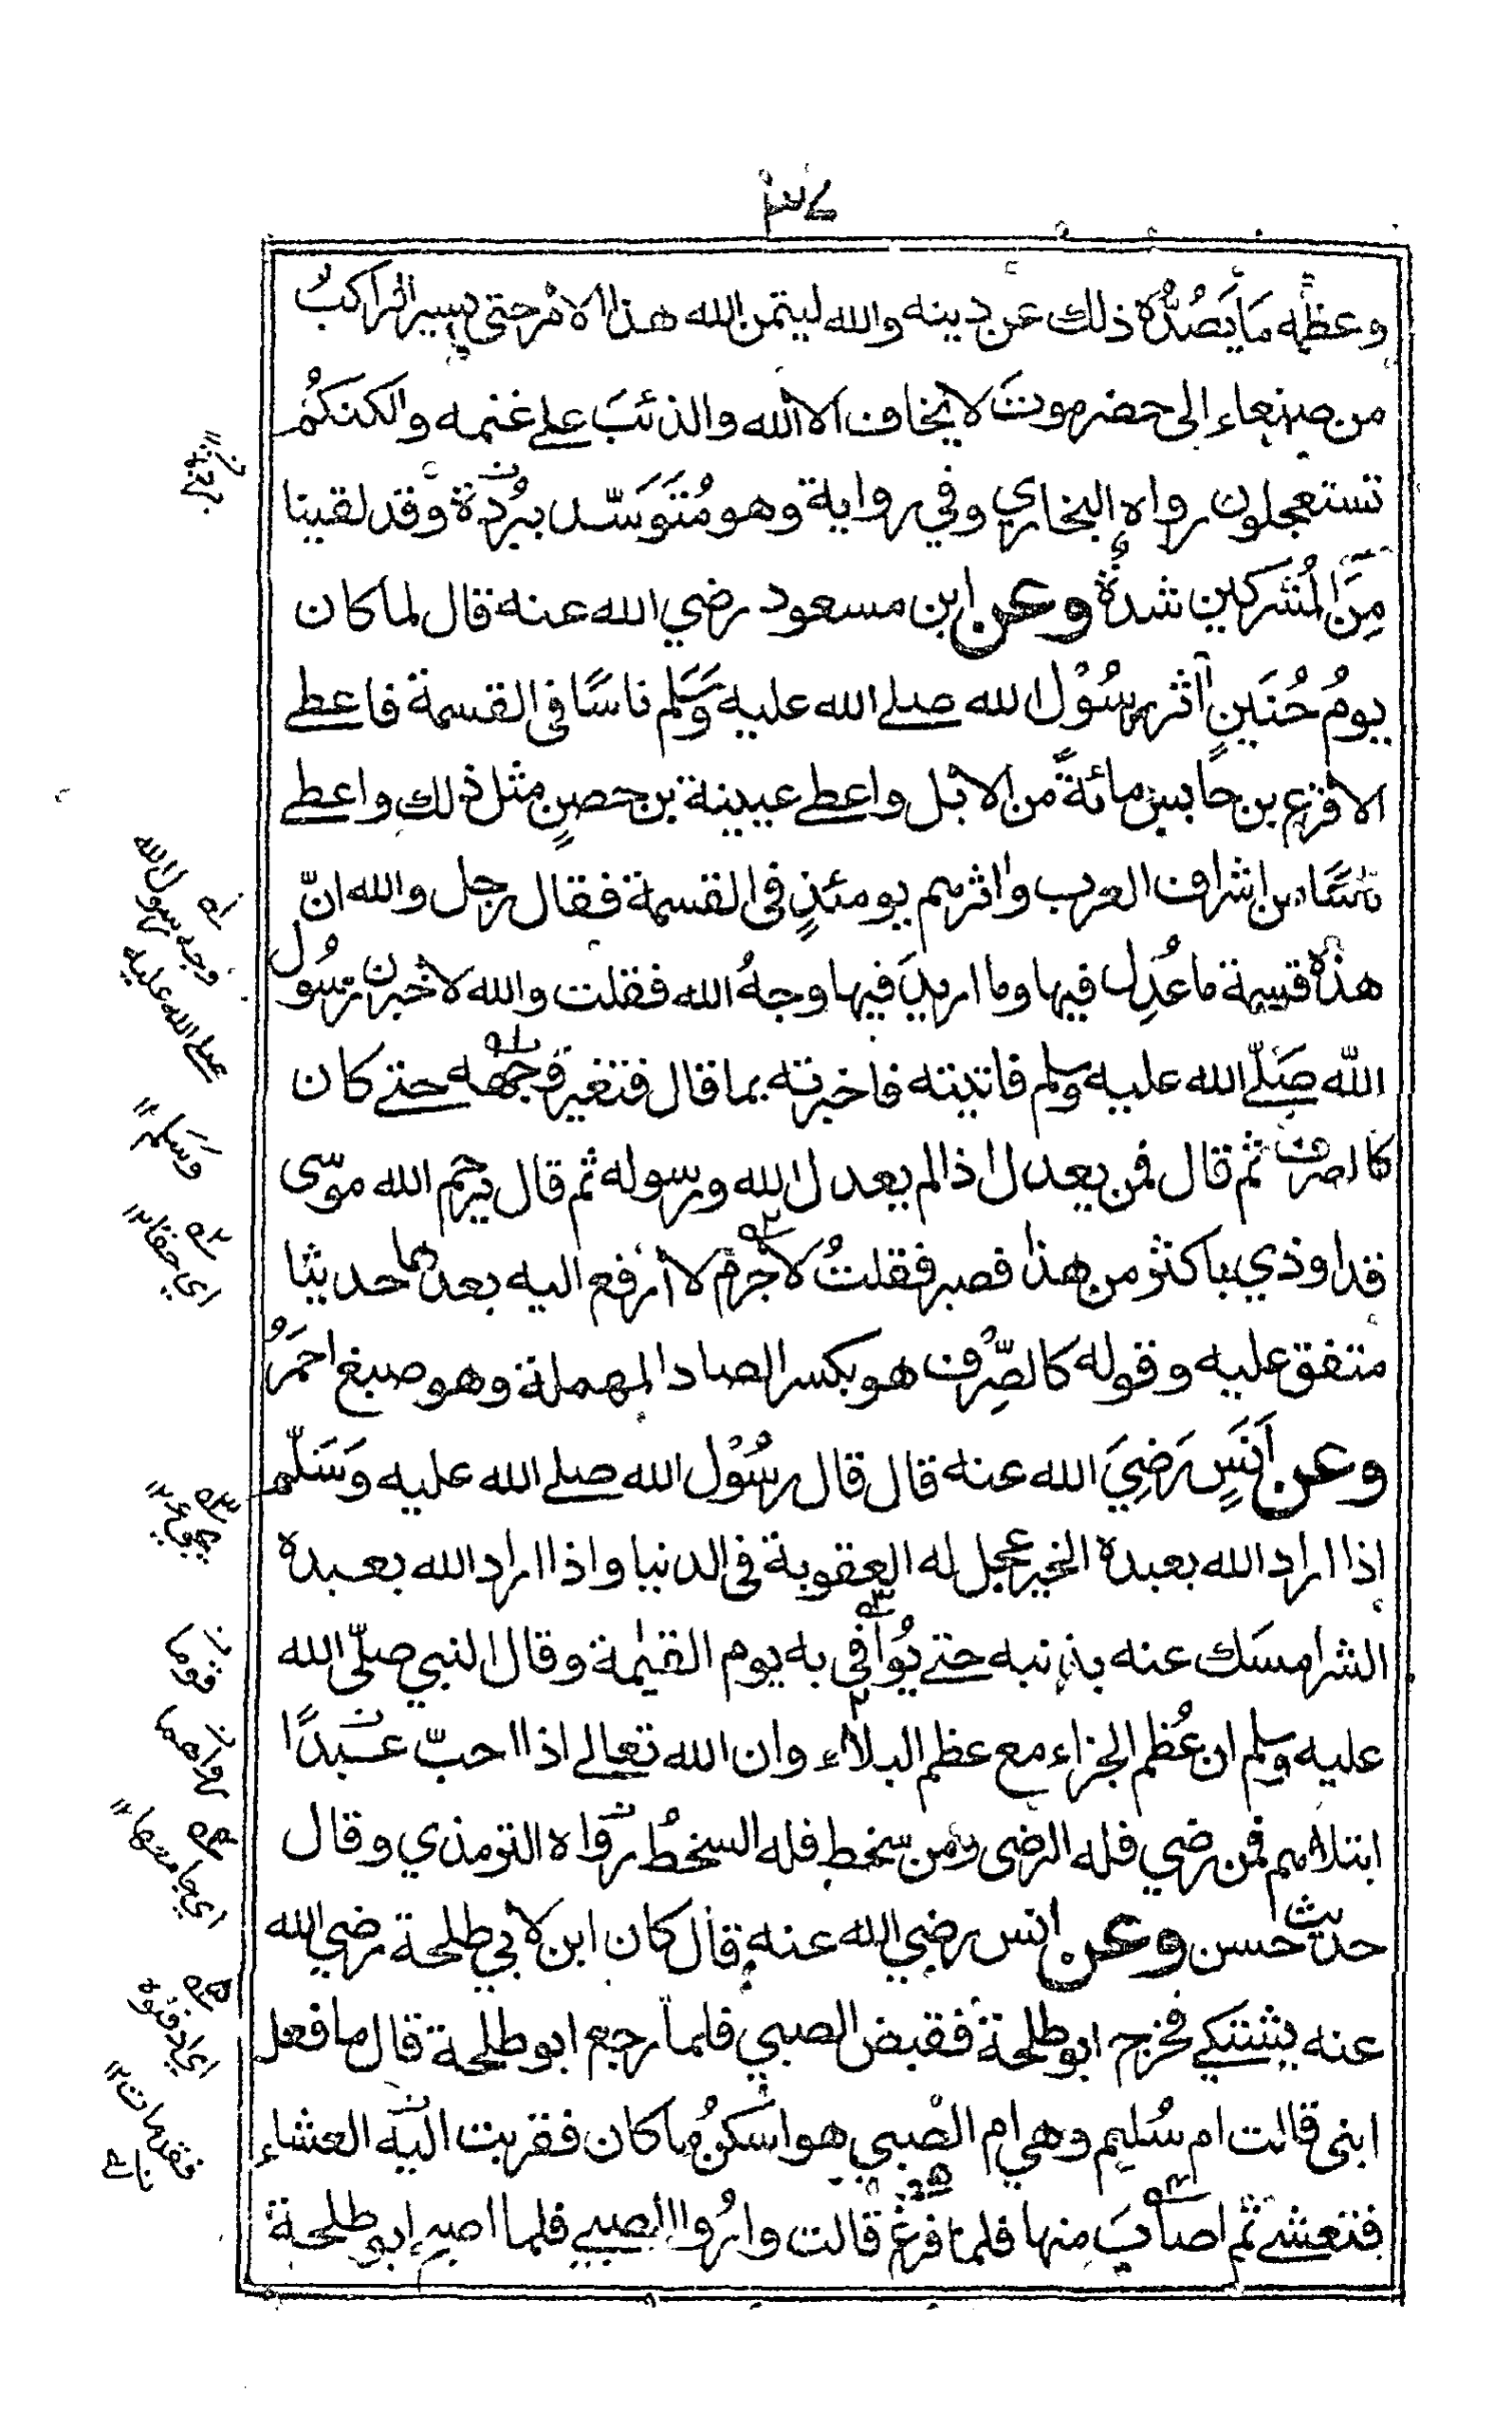 ٣٧
وعظمه مَا يَصُدُّهُ ذلك عن دينه والله ليتمن الله هذا الامر حتى يسير الراكبُ
من صنعاء الى حضرموتَ لا يخاف الا الله والذئبَ على غنمه ولكنكُم
تستعجلون رواه البخاري وفي رواية وهو مُتَوَسّد بُردَة وقد لقينا
مِنَ المُشركين شدةً وعن ابن مسعود رضي الله عنه قال لما كان
يومُ حُنَينٍ آثر رسُوْل الله صلى الله عليه وَسَلم ناسًا فى القسمة فاعطى
الاقرع بن حابس مائةً من الابل واعطى عيينة بن حصنٍ مثل ذلك واعطى
ناسًا من اشراف العرب واثرهم يومئذٍ فى القسمة فقال رجل والله انّ
هذه قسمة ما عُدِل فيها وما اريدَ فيها وجهُ الله فقلت والله لاخبرن رسُول
اللّه صَلّى الله عليه وسلم فاتيته فاخبرته بما قال فتغير وجهه حتى كان
كالصرف ثم قال فمن يعدل اذا لم يعدل الله ورسوله ثم قال يرحم الله موسى
قد اوذي باكثر من هذا فصبر فقلتُ لا جرم لا أرفع اليه بعدها حديثا
متفق عليه وقوله كالصِّرف هو بكسر الصاد المهملة وهو صبغ احمَرُ
وعن أنَسٍ رَضِيَ الله عنه قال قال رسُوْل الله صلى الله عليه وَسَلّم
اذا اراد الله بعبده الخير عجل له العقوبة فى الدنيا واذا اراد الله بعبده
الشر امسَك عنه بذنبه حتى يُوَافي به يوم القيٰمة وقال النبي صلّى الله
عليه وسلم ان عُظم الجزاء مع عظم البلاء وان الله تعالى اذا احبّ عَبدًا
ابتلاهم فمن رضي فله الرضى ومن سخط فله السخطُ رواه الترمذي وقال
حديث حسن وعن انس رضي الله عنه قال كان ابن لابي طلحة رضي الله
عنه يشتكي فخرج ابو طلحة فقبض الصبي فلما رجع ابو طلحة قال ما فعل
ابنى قالت ام سُليم وهي ام الصبي هو اسكنُ ما كان فقربت اليه العشاء
فتعشى ثم اصابَ منها فلما فرغ قالت وارُوا الصبي فلما اصبح ابو طلحة
وَجه رسول الله
صلى الله عليه
وَسَلم
اي حقا
اي جامعها
اي ادفنوه